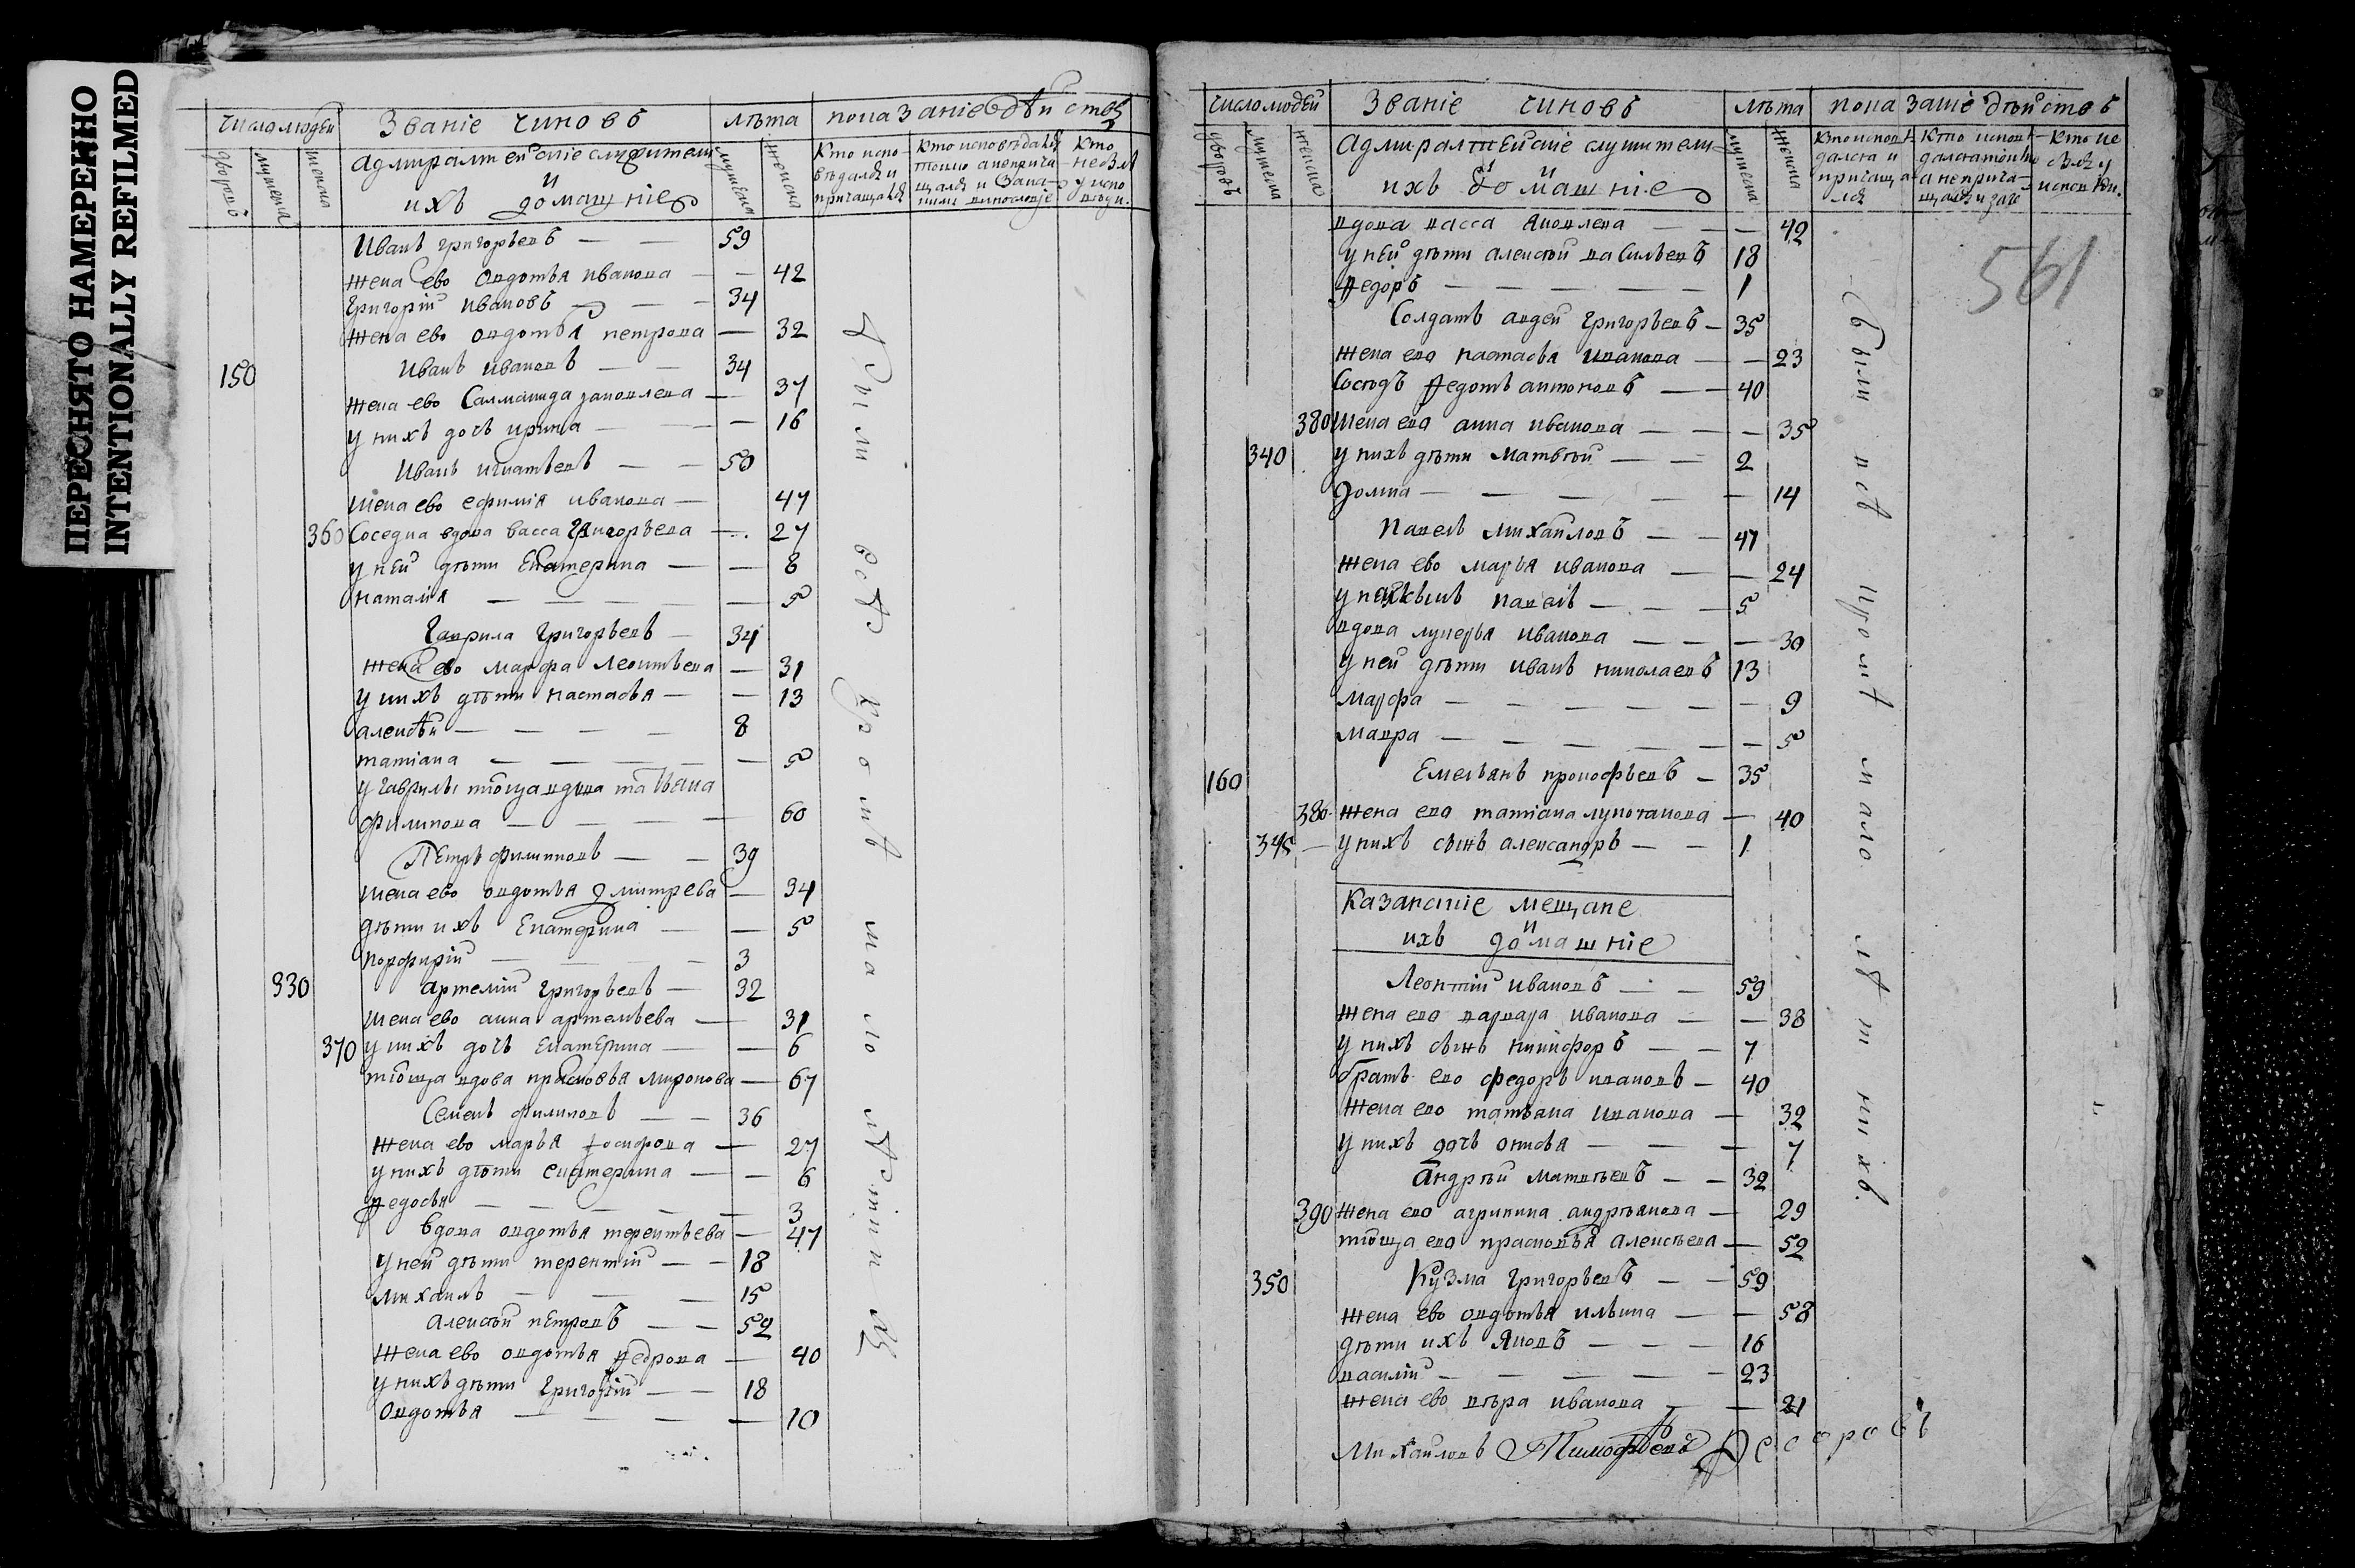 ПЕРЕСНЯТО НАМЕРЕННО
INTENTIONALLY REFILMED
число людей
званіе чиновъ
лѣта
показаніе действъ
дворовъ
мужеска
женска
адмиралтейскіе служители
и
ихъ домашніе
мужеска
женска
Кто испо
ведался и
причащался
Кто исповедался
токмо а неприча
щался и зака
Кто
не былъ
у испо
веди.
Иванъ григорьевъ — — 59
жена ево овдотья иванова — — 42
григорій ивановъ — — 34
жена ево овдотья петрова — 32
150 Иванъ ивановъ — — 34
жена ево Саламанида яковлева — 37
у нихъ дочь ирина — — 16
Иванъ игнатьевъ — — 50
жена ево ефимія иванова — 47
360 Соседка вдова васса Григорьева — 27
у ней дѣти Екатерина — — 8
наталія — — — 5
Гаврила Григорьевъ — 34
жена ево марфа леонтьева — 31
у нихъ дѣти настасья — — 13
алексѣй — — — — 8
татіана — — — — — 5
у гаврилы тіоща вдова татьяна
филипова — — — — 60
Петръ филиповъ — — 39
жена ево овдотья дмитрева — 34
дѣти ихъ Екатерина — — 5
порфирій — — — 3
330 артемій григорьевъ — 32
жена ево анна артемьева — 31
370 у нихъ дочь Екатерина — — 6
тіоща вдова прасковья миронова — 67
Семенъ филиповъ — — 36
жена ево марья осифова — 27
у нихъ дѣти екатерина — — 6
федосья — — — — — 3
вдова овдотья терентьева — 47
у ней дѣти терентій — — 18
михаилъ — — — 15
алексѣй петровъ — — 52
жена ево овдотья федрова — 40
у нихъ дѣти григорій — — 18
овдотья — — — — 10
были всѣ кромѣ малолѣтнихъ
число людей
званіе чиновъ
лѣта
показаніе действъ
дворовъ
мужеска
женска
адмиралтейскіе служители
и
ихъ домашніе
мужеска
женска
Кто исповѣ
дался и
причаща
лся
Кто исповѣ
дался токмо
а неприча
щался и заче
Кто не
былъ у
исповѣди.
561
вдова васса яковлева — — — 42
у ней дѣти алексѣй васильевъ 18
федоръ — — — — — 1
Солдатъ авдей григорьевъ — 35
жена ево настасья иванова — — 23
Соседъ федотъ антоновъ — — 40
380 жена ево анна иванова — — — 35
340 у нихъ дѣти матвѣй — — 2
домна — — — — — 14
павелъ михаиловъ — — 47
жена ево марья иванова — — 24
у нихъ сынъ павелъ — — — 5
вдова лукерья иванова — — — 30
у ней дѣти иванъ николаевъ 13
марфа — — — — — — 9
мавра — — — — — — 5
160 Емельянъ прокофьевъ — 35
380 жена ево татіана лупоганова — 40
345 — у нихъ сынъ александръ — — 1
Казанскіе мещане
и
ихъ домашніе
Леонтій ивановъ — — 59
жена ево варвара иванова — — 38
у нихъ сынъ никифоръ — — 7
братъ ево федоръ ивановъ — 40
жена ево татьяна иванова — 32
у нихъ дочь онисья — — — 7
андрѣй матвѣевъ — — 32
390 жена ево агрипина андрѣянова — 29
тіоща ево прасковья алексѣева — 52
350 Кузма григорьевъ — — 59
жена ево овдотья ильина — — 58
дѣти ихъ яковъ — — — 16
василій — — — — — 23
жена ево вѣра иванова — — 21
были всѣ кромѣ малолѣтнихъ.
Михаиловъ Тимофѣевъ Федоровъ